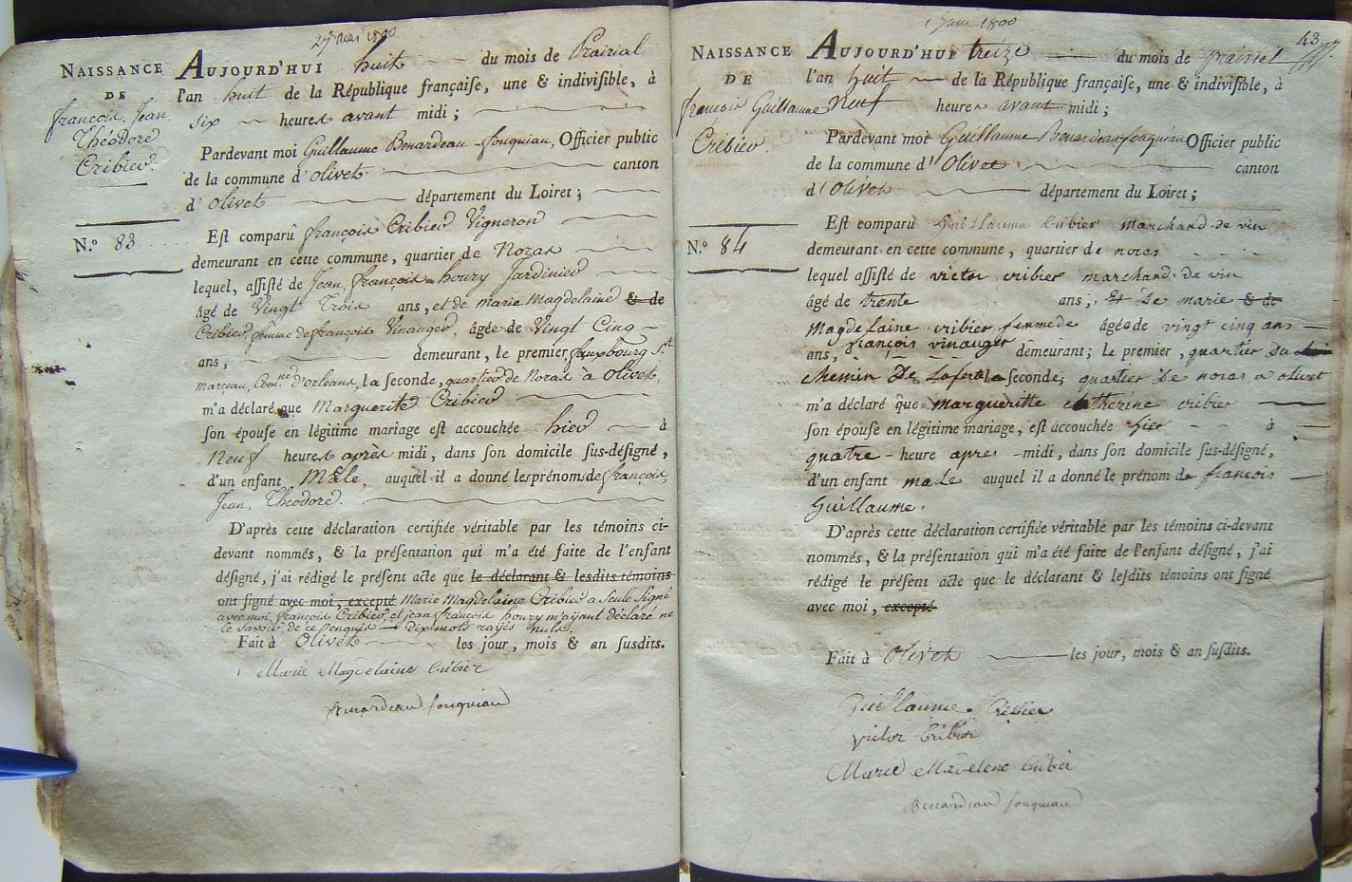 27 mai 1800
NAISSANCE
DE
françois Jean
Théodore
Cribier
N.º 83
AUJOURD'HUI huit du mois de Prairial
l'an huit de la République française, une & indivisible, à
six heures avant midi;
Pardevant moi Guillaume Benardeau-fouquiau, Officier public
de la commune d'olivet canton
d'olivet département du Loiret;
Est comparû françois Cribier Vigneron
demeurant en cette commune, quartier de Noras
lequel, assisté de Jean françois houry Jardinier
âgé de Vingt Trois ans, et de marie Magdelaine & de
Cribier, femme de françois Vinauger, âgée de Vingt Cinq
ans, demeurant, le premier fauxbourg St
marceau, Comne d'orleans, la seconde, quartier de Noras à Olivet,
m'a déclaré que Marguerite Cribier
son épouse en légitime mariage est accouchée hier à
Neuf heures après midi, dans son domicile sus-désigné,
d'un enfant Mâle, auquel il a donné les prénoms de françois,
Jean, Théodore.
D'après cette déclaration certifiée véritable par les témoins ci-
devant nommés, & la présentation qui m'a été faite de l'enfant
désigné, j'ai rédigé le présent acte que le déclarant & lesdits témoins
ont signé avec moi, excepté Marie Magdelaine Cribier a Seule Signé
avec moi, françois Cribier, et jean françois houry m'ayant déclaré ne
le savoir, de ce enquis dix mots rayés nuls.
Fait à Olivet les jour, mois & an susdits.
Marie Magdelaine Cribier
Benardeau fouquiau
1 juin 1800
43
NAISSANCE
DE
françois Guillaume
Cribier.
N.º 84
AUJOURD'HUI treize du mois de prairial
l'an huit de la République française, une & indivisible, à
Neuf heures avant midi;
Pardevant moi Guillaume Benardeau fouquiau Officier public
de la commune d'Olivet canton
d'Olivet département du Loiret;
Est comparû Guillaume Cribier marchand de vin
demeurant en cette commune, quartier de noras
lequel assisté de victor cribier marchand de vin
âgé de trente ans, Et de marie & de
Magdelaine cribier femme de âgée de vingt cinq ans
ans, françois vinauger demeurant; le premier, quartier du
chemin De la seconde; quartier De noras a olivet
m'a déclaré que margueritte catherine cribier
son épouse en légitime mariage, est accouchée hier à
quatre heure apres midi, dans son domicile sus-désigné,
d'un enfant male auquel il a donné le prénom de francois
Guillaume.
D'après cette déclaration certifiée véritable par les témoins ci-devant
nommés, & la présentation qui m'a été faite de l'enfant désigné, j'ai
rédigé le présent acte que le déclarant & lesdits témoins ont signé
avec moi, excepté
Fait à Olivet les jour, mois & an susdits.
Guillaume Cribier
victor Cribier
Marie Madelene cribier
Benardeau fouquiau